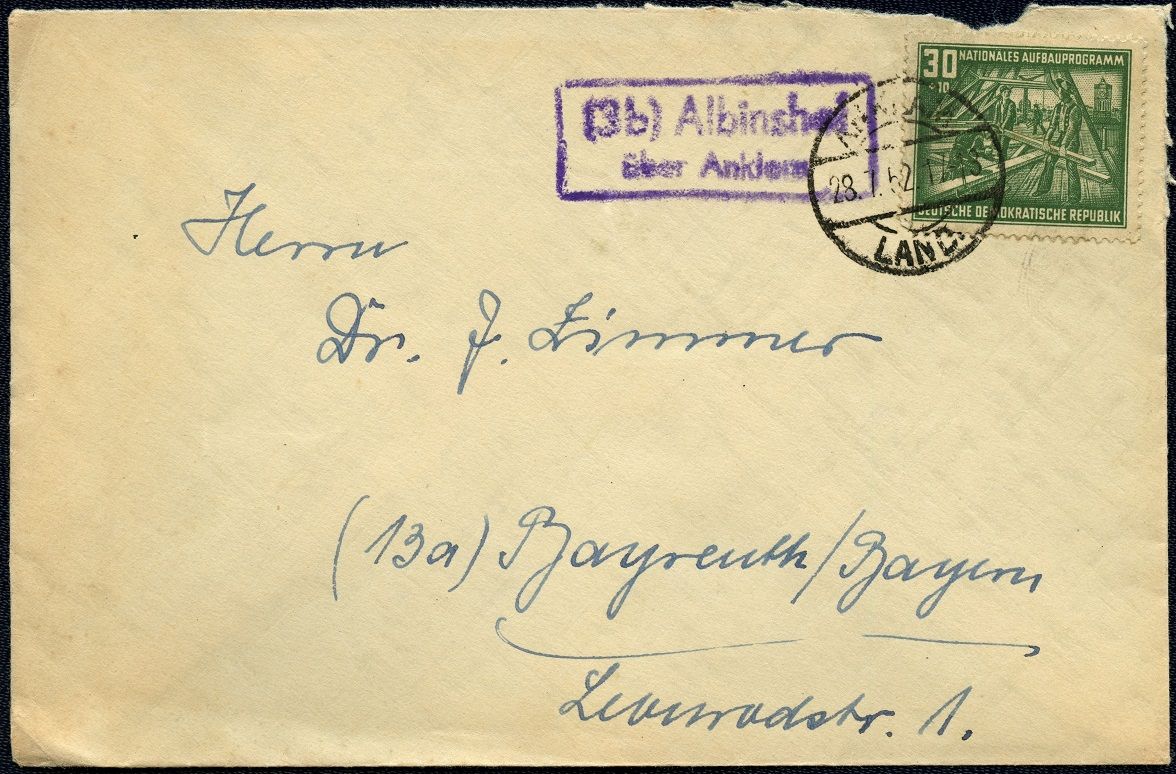 (3b) Albinshof
über Anklam
30
+10
NATIONALES AUFBAUPROGRAMM
DEUTSCHE DEMOKRATISCHE REPUBLIK
ANKLAM
28.7.52.17-18
LAND
Herrn
Dr. J. Zimmer
(13a) Bayreuth/Bayern
1.